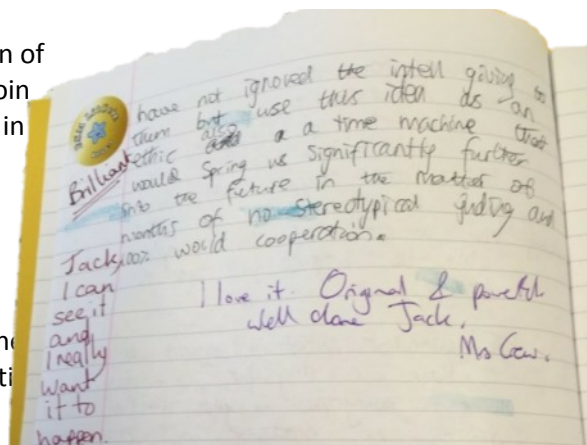 n of
oin
in
have not ignored the intell giving to
them but also use this idea as an
ethic a a time machine that
would spring us significantly further
into the future in the matter of
months of no stereotypical guding and
100% world cooperation.
Brilliant
Jack,
I can
see it
and
I really
want
it to
happen.
I love it. Original & powerful
well done Jack.
Ms
ne
ti